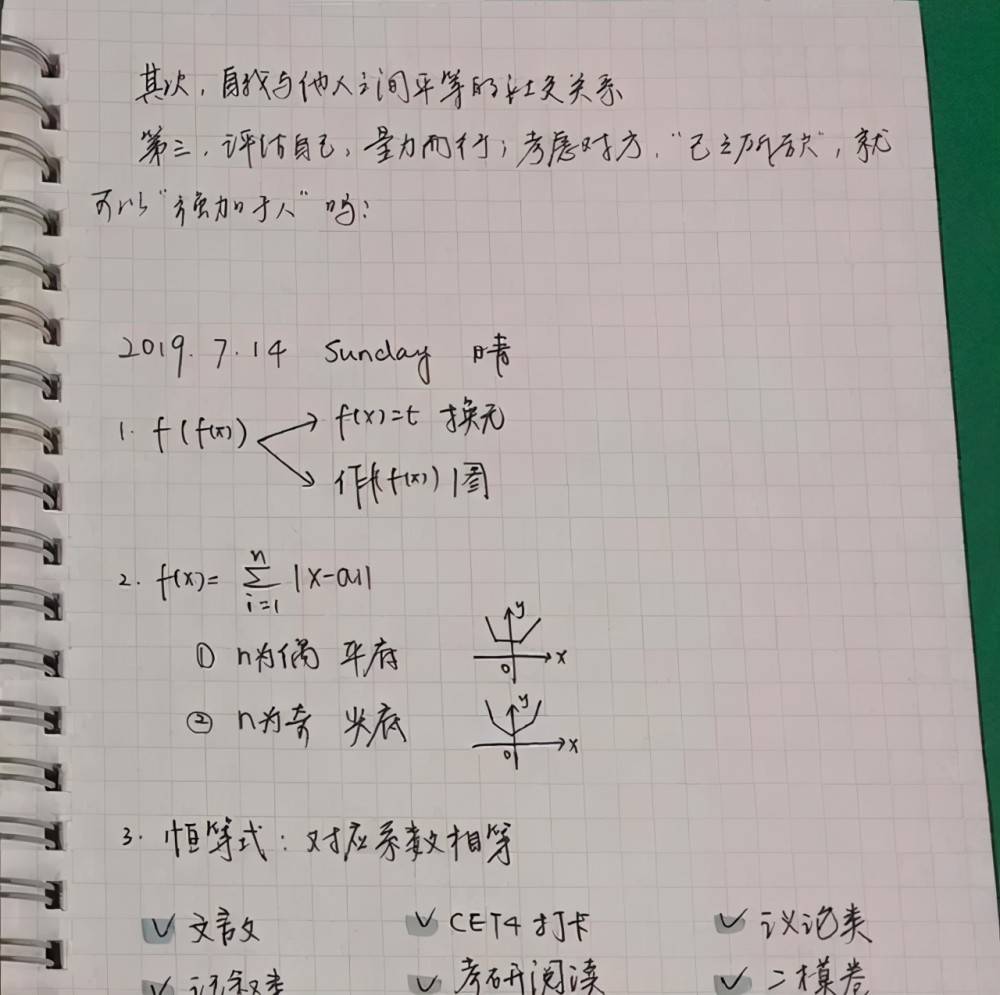 其次,自我与他人之间平等的社交关系
第三,评估自己,量力而行;考虑对方,“己之所欲”,就
可以“强加于人”吗?
2019.7.14 Sunday 晴
1. f(f(x))
f(x)=t 换元
作f(f(x))图
2. f(x)= n∑i=1 |x-ai|
① n为偶 平底
y
0 x
② n为奇 尖底
y
0 x
3. 恒等式:对应系数相等
✓ 文言文 ✓ CET4打卡 ✓ 议论类
✓ 记叙类 ✓ 考研阅读 ✓ 二模卷